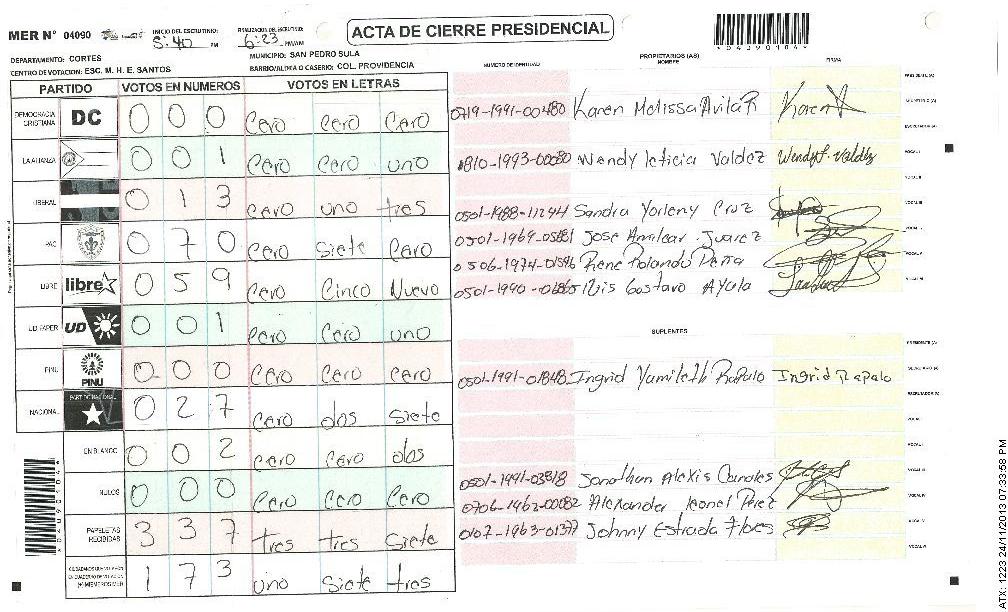 ACTA DE CIERRE PRESIDENCIAL
MER N° 04090
INICIO DEL ESCRUTINIO: 5:40 PM
FINALIZACION DEL ESCRUTINIO: 6:23 PM/AM
*04090104*
DEPARTAMENTO: CORTES
MUNICIPIO: SAN PEDRO SULA
CENTRO DE VOTACION: ESC. M. H. E. SANTOS
BARRIO/ALDEA O CASERIO: COL. PROVIDENCIA
PARTIDO VOTOS EN NUMEROS VOTOS EN LETRAS
DEMOCRACIA CRISTIANA DC 0 0 0 Cero Cero Cero
LA ALIANZA 0 0 1 Cero Cero uno
LIBERAL 0 1 3 Cero uno tres
PAC 0 7 0 Cero Siete Cero
LIBRE libre 0 5 9 Cero Cinco Nuevo
UD, FAPER UD 0 0 1 Cero Cero uno
PINU PINU 0 0 0 Cero Cero Cero
NACIONAL PARTIDO NACIONAL 0 2 7 Cero dos Siete
EN BLANCO 0 0 2 Cero Cero dos
NULOS 0 0 0 Cero Cero Cero
PAPELETAS RECIBIDAS 3 3 7 tres tres Siete
CIUDADANOS QUE VOTARON EN CUADERNO DE VOTACION (+) MIEMBROS MER 1 7 3 uno Siete tres
NUMERO DE IDENTIDAD PROPIETARIOS (AS) NOMBRE FIRMA
PRESIDENTE (A)
0719-1991-00480 Karen Melissa Avila R Karen SECRETARIO (A)
ESCRUTADOR (A)
1810-1993-00080 Wendy leticia Valdez Wendy l. Valdez VOCAL I
VOCAL II
0501-1988-11244 Sandra Yorleny Cruz VOCAL III
0501-1969-05881 Jose Amilcar Juarez
0506-1974-01596 Rene Rolando Peña VOCAL V
Luis Gustavo Ayala VOCAL VI
SUPLENTES
PRESIDENTE (A)
0501-1991-01848 Ingrid Yamileth Rapalo Ingrid Rapalo SECRETARIO (A)
ESCRUTADOR (A)
VOCAL I
VOCAL II
0501-1991-03818 Jonathan Alexis Canales VOCAL III
0706-1962-00082 Alexander leonel Perez VOCAL IV
0107-1963-01377 Johnny Estrada Flores VOCAL V
VOCAL VI
ATX: 1223 24/11/2013 07:33:58 PM